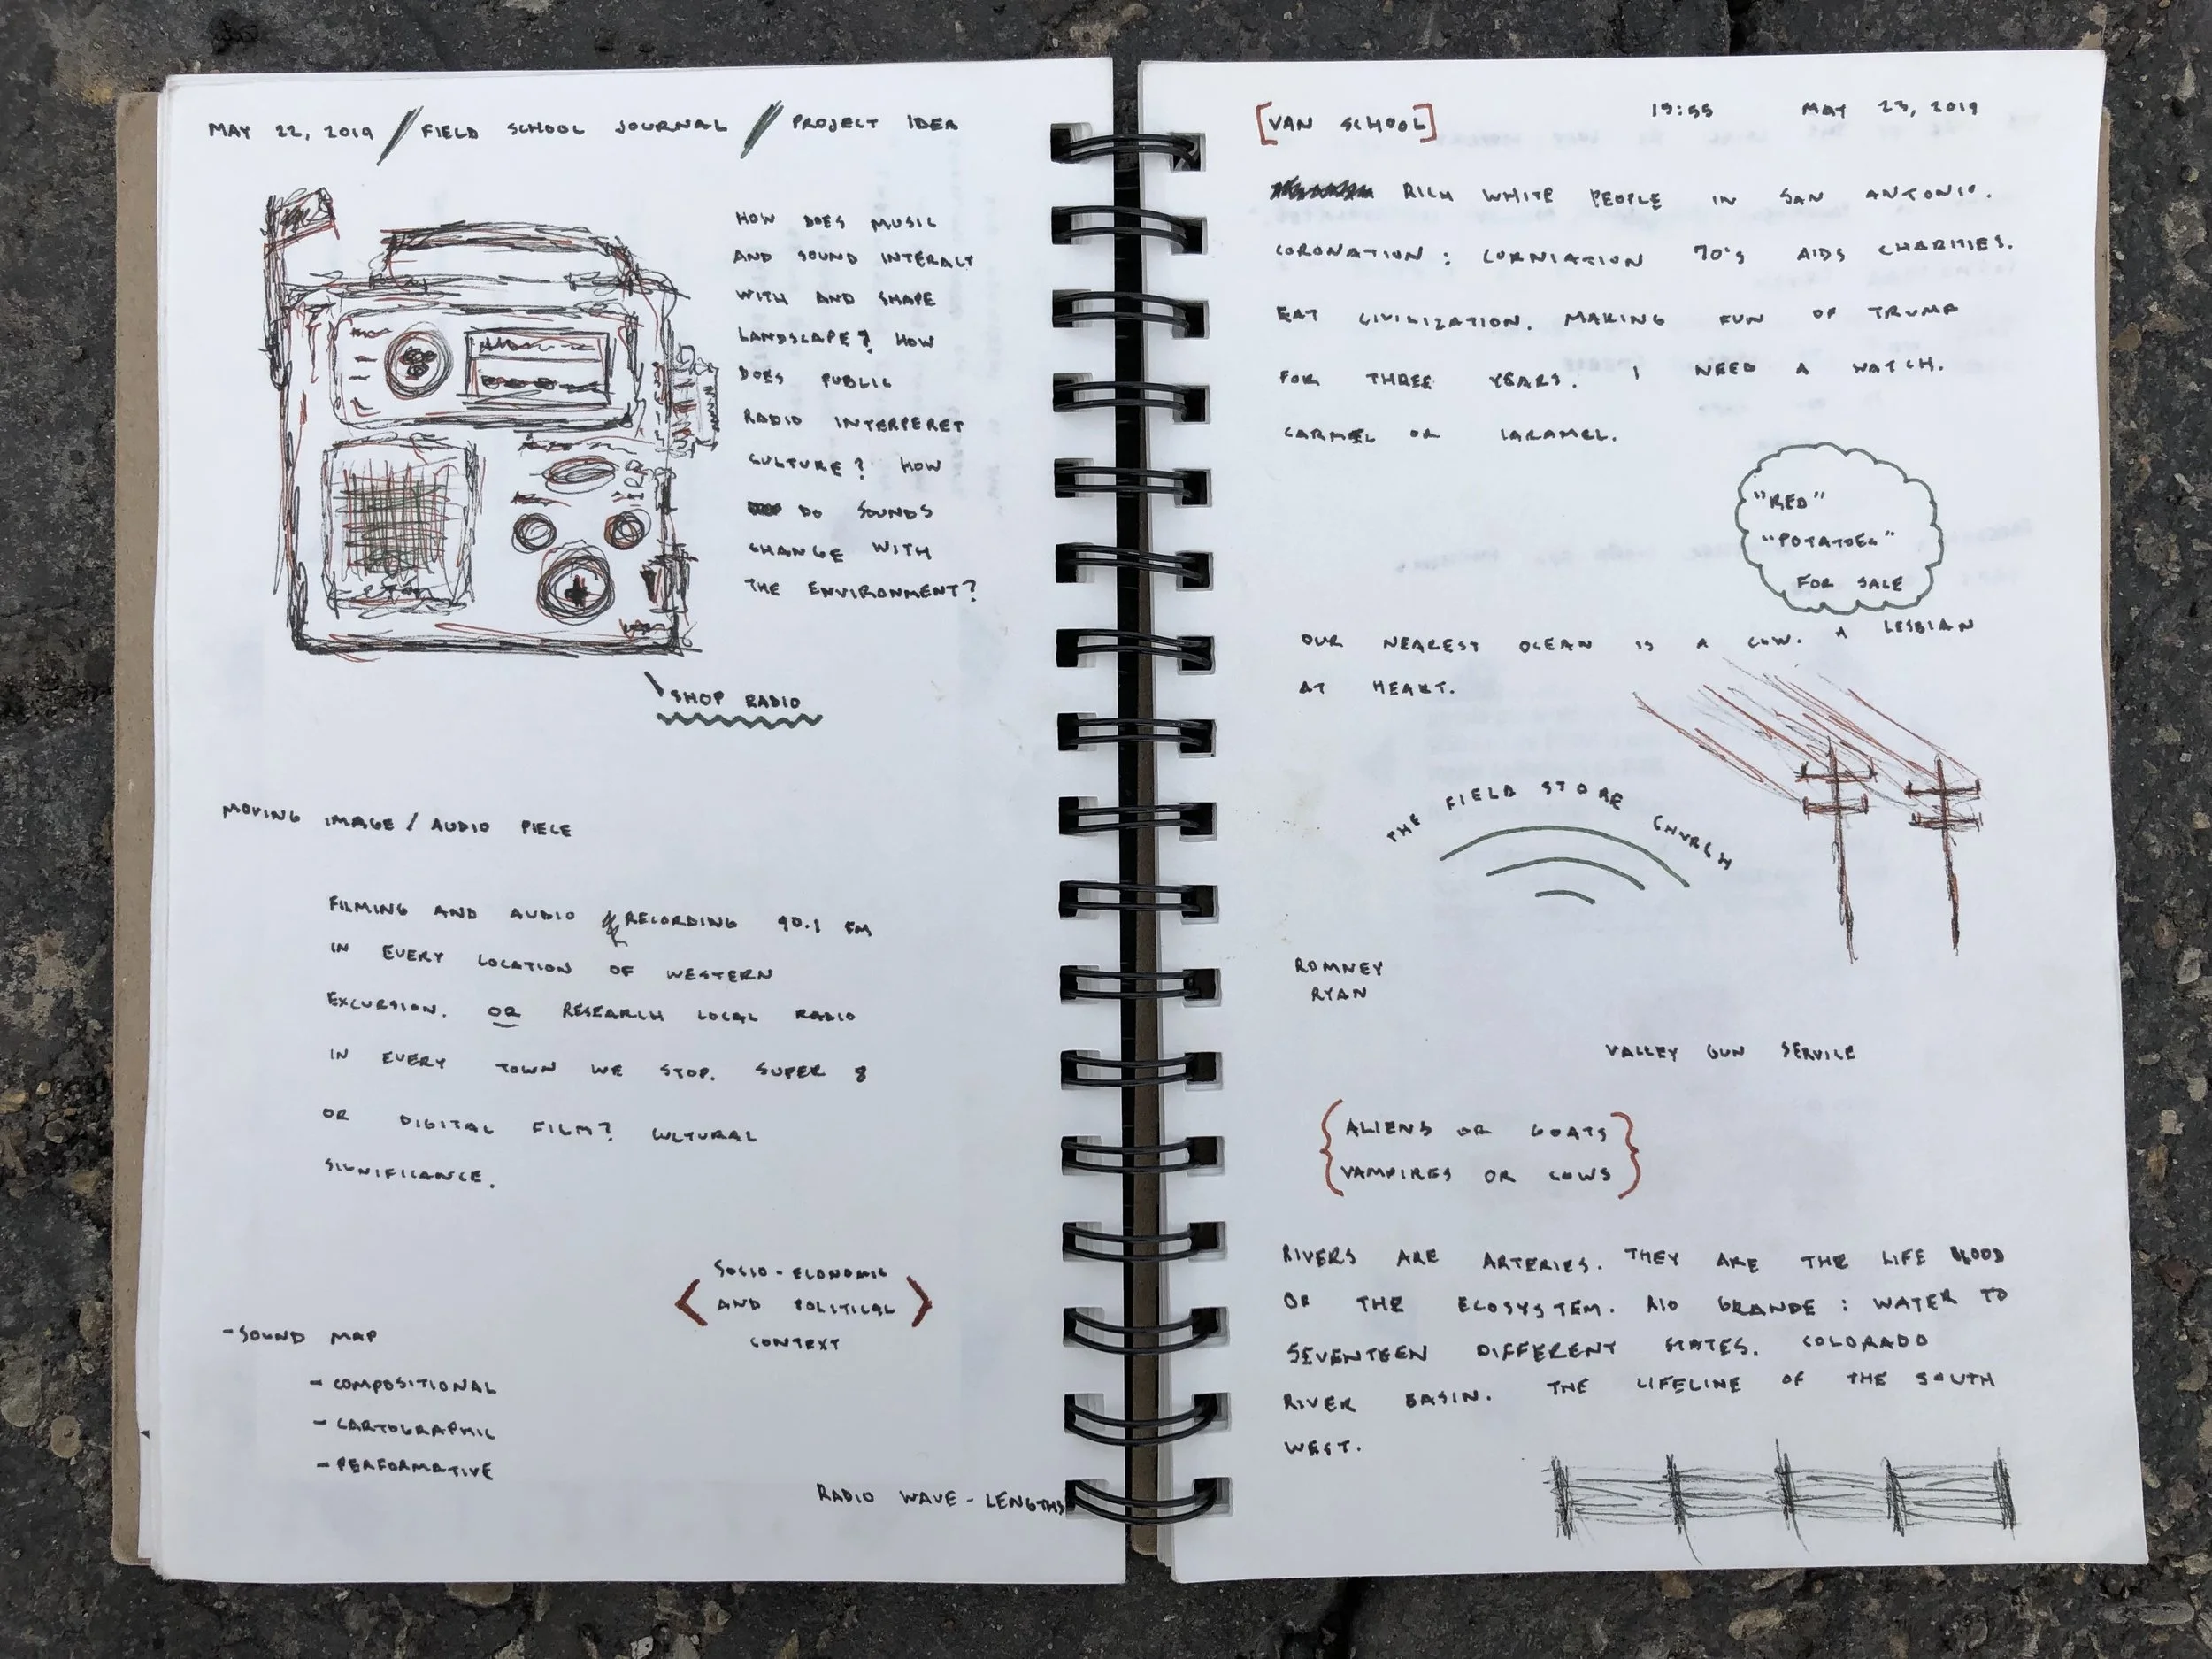 MAY 22, 2019 / FIELD SCHOOL JOURNAL / PROJECT IDEA
HOW DOES MUSIC
AND SOUND INTERACT
WITH AND SHAPE
LANDSCAPE? HOW
DOES PUBLIC
RADIO INTERPERET
CULTURE? HOW
DO SOUNDS
CHANGE WITH
THE ENVIRONMENT?
SHOP RADIO
MOVING IMAGE / AUDIO PIECE
FILMING AND AUDIO RECORDING 90.1 FM
IN EVERY LOCATION OF WESTERN
EXCURSION. OR RESEARCH LOCAL RADIO
IN EVERY TOWN WE STOP. SUPER 8
OR DIGITAL FILM? CULTURAL
SIGNIFICANCE.
SOCIO-ECONOMIC
AND POLITICAL
CONTEXT
-SOUND MAP
- COMPOSITIONAL
- CARTOGRAPHIC
- PERFORMATIVE
RADIO WAVE-LENGTHS
[VAN SCHOOL] 15:55 MAY 23, 2019
RICH WHITE PEOPLE IN SAN ANTONIO.
CORONATION: CORNIATION 70's AIDS CHARITIES.
EAT CIVILIZATION. MAKING FUN OF TRUMP
FOR THREE YEARS. I NEED A WATCH.
CARMEL OR CARAMEL.
"RED"
"POTATOES"
FOR SALE
OUR NEAREST OCEAN IS A COW. A LESBIAN
AT HEART.
THE FIELD STORE CHURCH
ROMNEY
RYAN
VALLEY GUN SERVICE
{ALIENS OR GOATS
VAMPIRES OR COWS}
RIVERS ARE ARTERIES. THEY ARE THE LIFE BLOOD
OF THE ECOSYSTEM. RIO GRANDE: WATER TO
SEVENTEEN DIFFERENT STATES. COLORADO
RIVER BASIN. THE LIFELINE OF THE SOUTH
WEST.